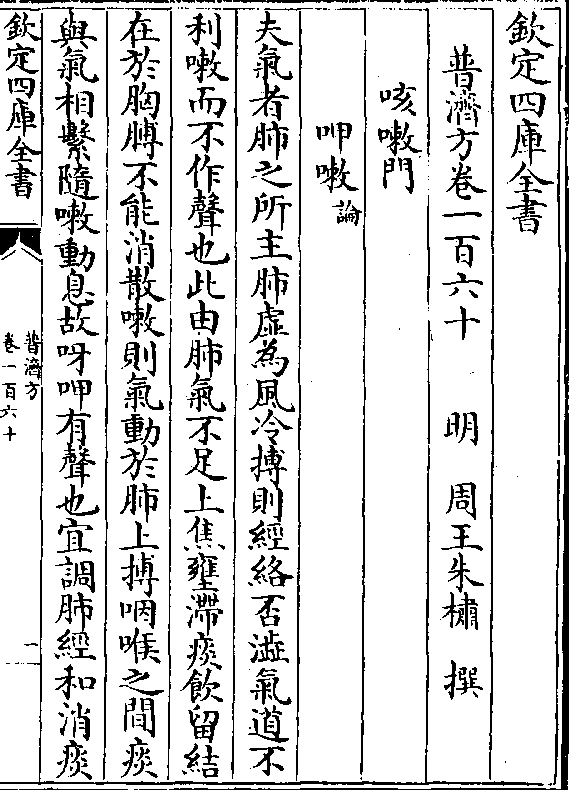 欽定四庫全書
普濟方卷一百六十 明 周王朱橚 撰
咳嗽門
呷嗽論
夫氣者肺之所主肺虛為風冷搏則經絡否澁氣道不
利嗽而不作聲也此由肺氣不足上焦壅滯痰飲留結
在於胸膊不能消散嗽則氣動於肺上搏咽喉之間痰
與氣相繫隨嗽動息故呀呷有聲也宜調肺經和消痰
欽定四庫全書
普濟方
卷一百六十
一